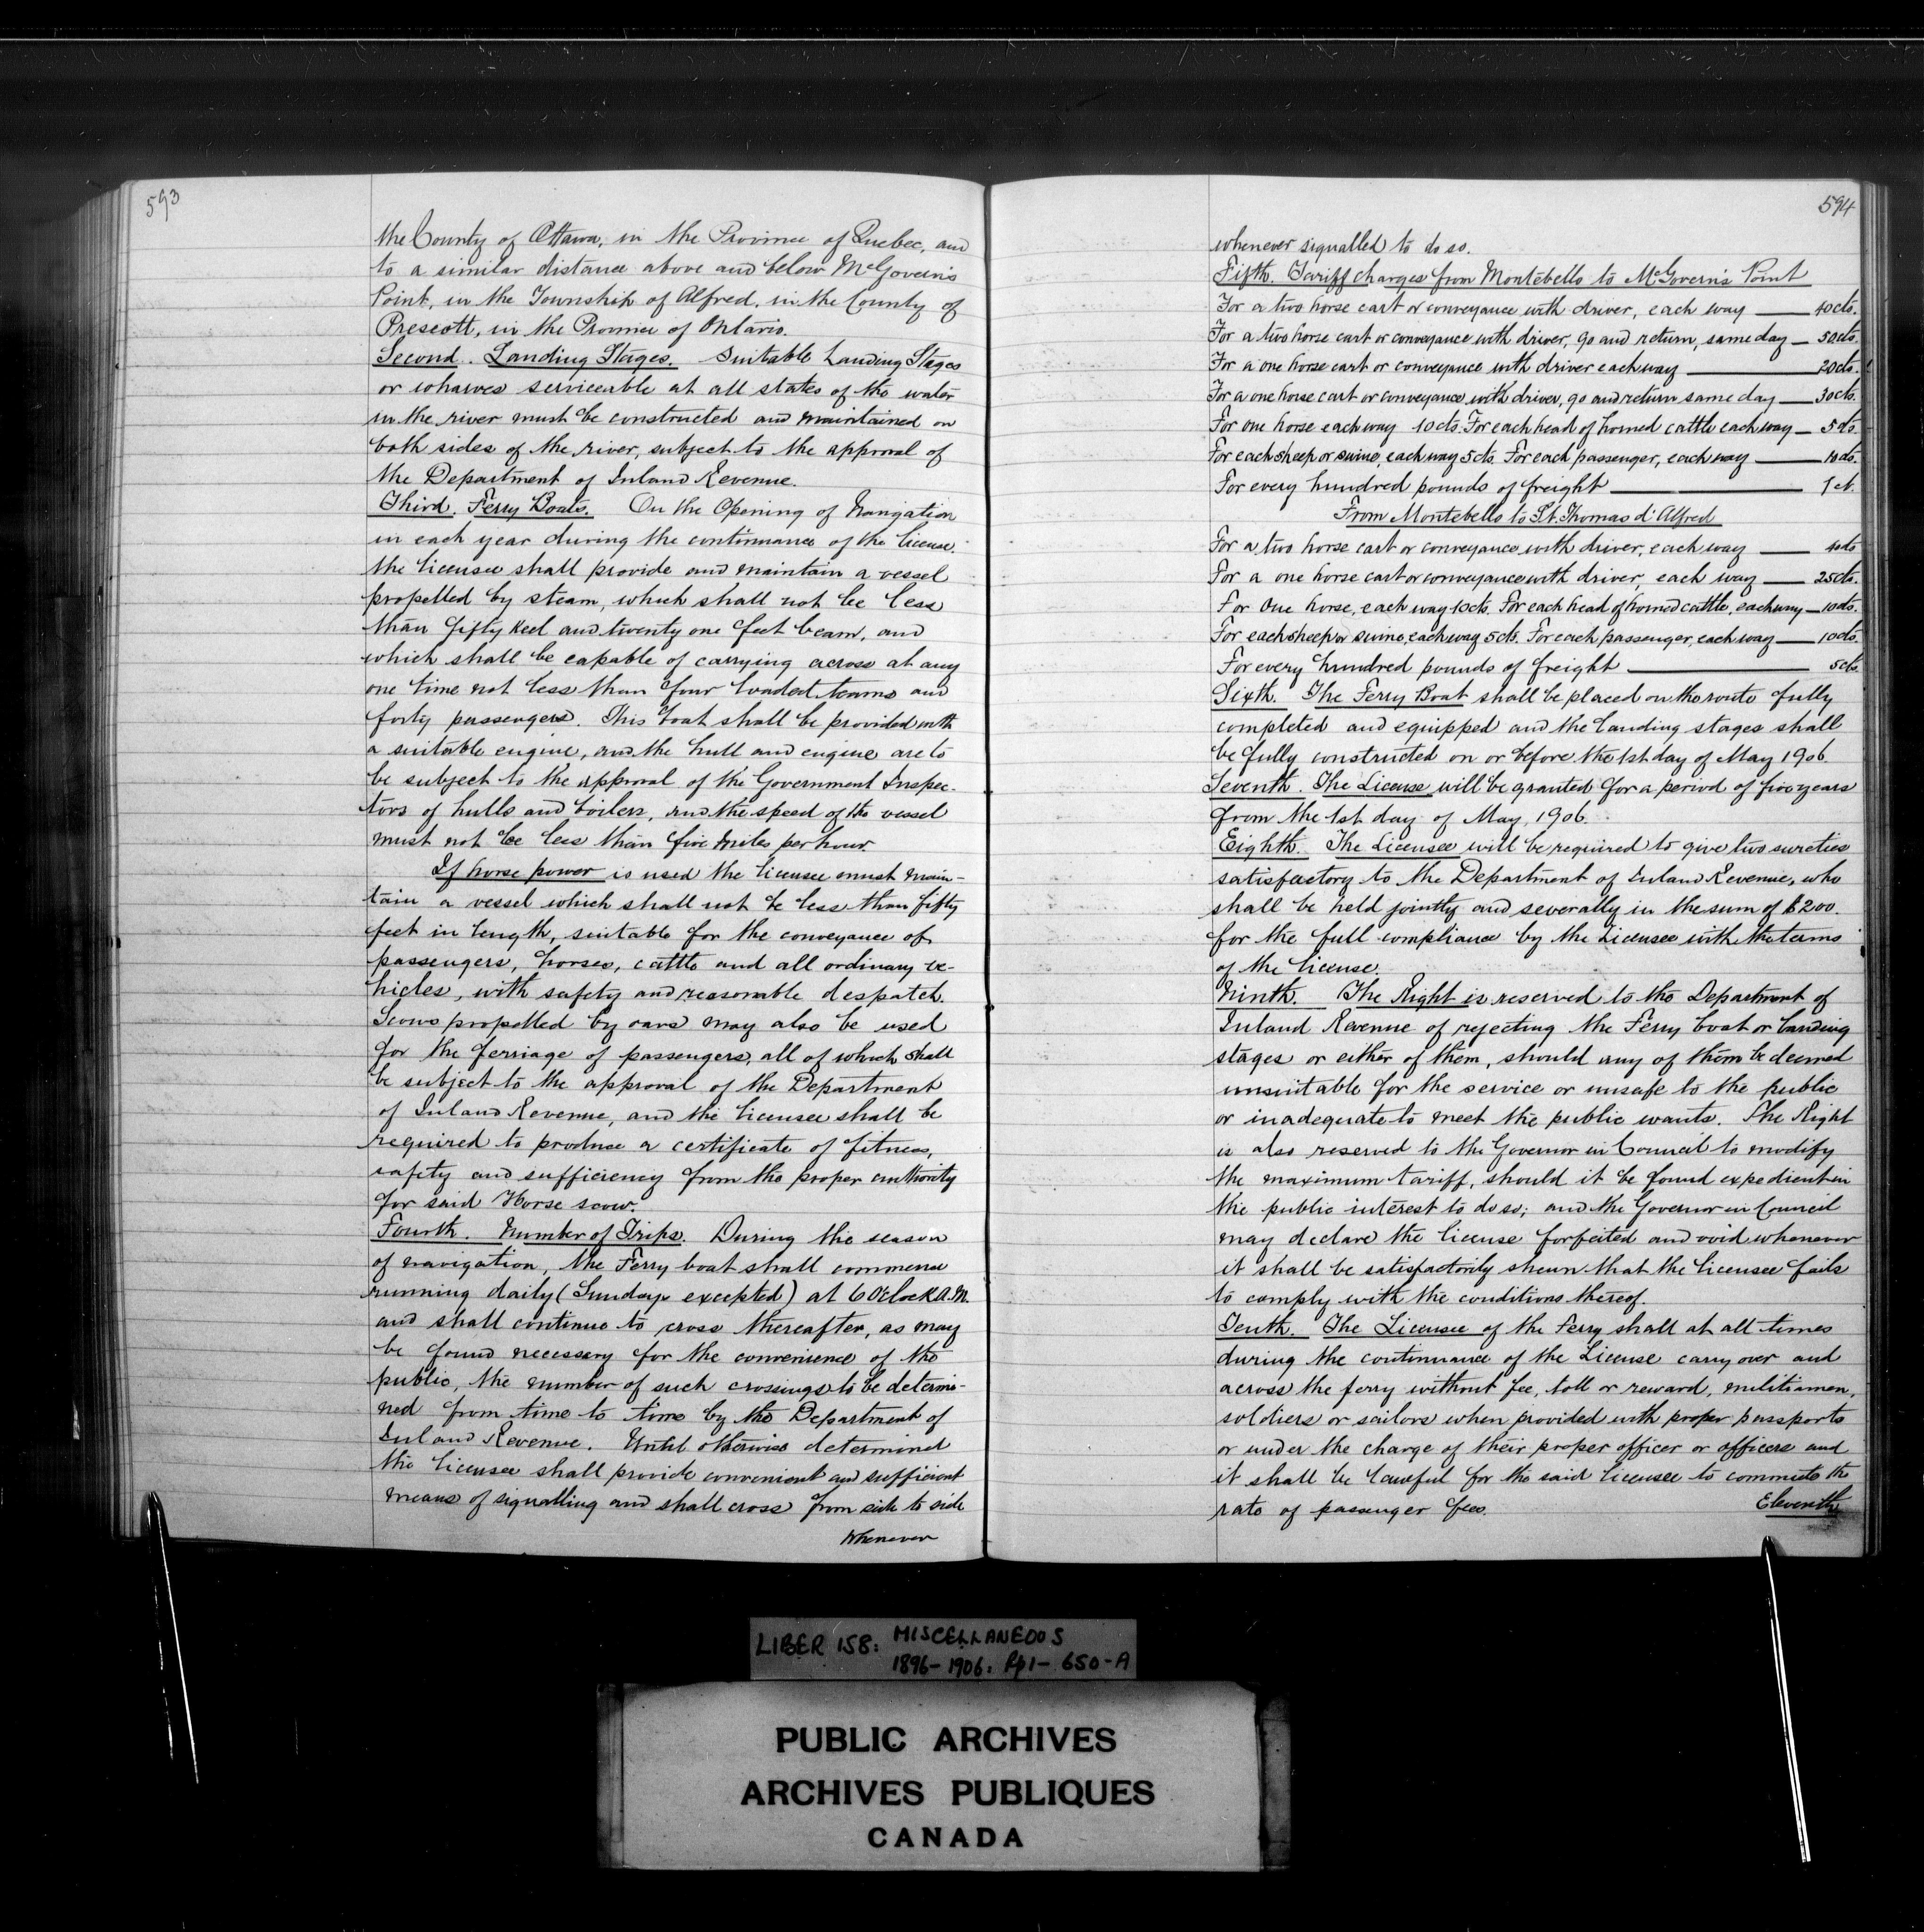 593
the County of Ottawa, in the Province of Quebec, and
to a similar distance above and below McGovern's
Point, in the Township of Alfred, in the County of
Prescott, in the Province of Ontario.
Second. Landing Stages. Suitable Landing Stages
or wharves serviceable at all states of the water
in the river must be constructed and maintained on
both sides of the river, subject to the approval of
the Department of Inland Revenue.
Third. Ferry Boats. On the Opening of Navigation
in each year during the continuance of the license.
the licensee shall provide and maintain a vessel
propelled by steam, which shall not be less
than fifty keel and twenty one feet beam, and
which shall be capable of carrying across at any
one time not less than four loaded teams and
forty passengers. This boat shall be provided with
a suitable engine, and the hull and engine are to
be subject to the approval of the Government Inspec-
tors of hulls and boilers, and the speed of the vessel
must not be less than five miles per hour.
If horse power is used the licensee must main-
tain a vessel which shall not be less than fifty
feet in length, suitable for the conveyance of
passengers, horses, cattle and all ordinary ve-
hicles, with safety and reasonable despatch.
Scows propelled by oars may also be used
for the ferriage of passengers, all of which shall
be subject to the approval of the Department
of Inland Revenue, and the licensee shall be
required to produce a certificate of fitness,
safety and sufficiency from the proper authority
for said Horse scow.
Fourth. Number of Trips. During the season
of navigation, the Ferry boat shall commence
running daily (Sundays excepted) at 6 O'clock A.M.
and shall continue to cross thereafter, as may
be found necessary for the convenience of the
public, the number of such crossings to be determi-
ned from time to time by the Department of
Inland Revenue. Until otherwise determined
the licensee shall provide convenient and sufficient
means of signalling and shall cross from side to side
Whenever
594
whenever signalled to do so.
Fifth. Tariff charges from Montebello to McGovern's Point
For a two horse cart or conveyance with driver, each way — 40cts.
For a two horse cart or conveyance with driver, go and return, same day — 50cts.
For a one horse cart or conveyance with driver each way — 20cts.
For a one horse cart or conveyance with driver, go and return same day — 30cts.
For one horse each way 10cts. For each head of horned cattle each way — 5cts.
For each sheep or swine, each way 5cts. For each passenger, each way — 10cts.
For every hundred pounds of freight — 1ct.
From Montebello to St. Thomas d'Alfred
For a two horse cart or conveyance with driver, each way — 40cts
For a one horse cart or conveyance with driver, each way — 25cts.
For One horse, each way 10cts. For each head of horned cattle, each way — 10cts.
For each sheep or swine, each way 5cts. For each passenger, each way — 10cts.
For every hundred pounds of freight — 5cts
Sixth. The Ferry Boat shall be placed on the route fully
completed and equipped and the landing stages shall
be fully constructed on or before the 1st day of May 1906.
Seventh. The License will be granted for a period of five years
from the 1st day of May, 1906.
Eighth. The Licensee will be required to give two sureties
satisfactory to the Department of Inland Revenue, who
shall be held jointly and severally in the sum of $200.
for the full compliance by the Licensee with the terms
of the license.
Ninth. The Right is reserved to the Department of
Inland Revenue of rejecting the Ferry boat or landing
stages or either of them, should any of them be deemed
unsuitable for the service or unsafe to the public
or inadequate to meet the public wants. The Right
is also reserved to the Governor in Council to modify
the maximum tariff, should it be found expedient in
the public interest to do so; and the Governor in Council
may declare the license forfeited and void whenever
it shall be satisfactorily shewn that the licensee fails
to comply with the conditions thereof.
Tenth. The Licensee of the Ferry shall at all times
during the continuance of the License carry over and
across the ferry without fee, toll or reward, militiamen,
soldiers or sailors when provided with proper passports
or under the charge of their proper officer or officers and
it shall be lawful for the said licensee to commute the
rate of passenger fees.
Eleventh
LIBER 158: MISCELLANEOUS
1896-1906: Pp 1-650-A
PUBLIC ARCHIVES
ARCHIVES PUBLIQUES
CANADA